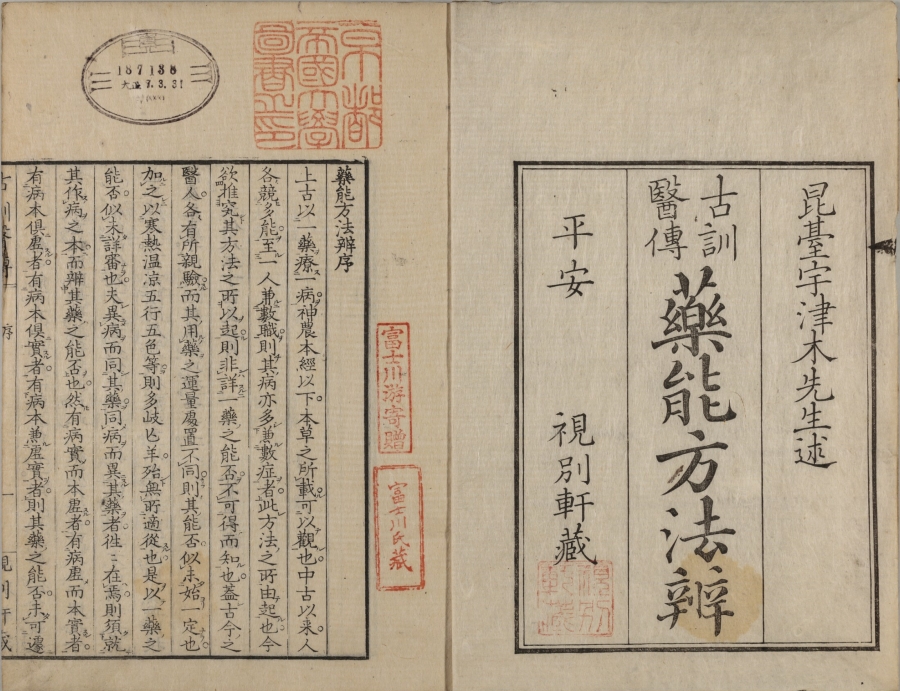 昆臺宇津木先生述
古訓
醫傳
藥能方法辨
平安
視別軒藏
視別
軒藏
京都
帝國大學
圖書之印
187138
大正7.3.31
富士川游寄贈
富士川氏藏
藥能方法辨序
上古以一藥療一病神農本經以下本草之所載可以觀也中古以来人
各競多能至一人兼數職則其病亦多兼數症者此方法之所由起也今
欲推究其方法之所以起則非詳一藥之能否不可得而知也蓋古今之
醫人各有所親驗而其用藥之運量處置不同則其能否似未始一定也
加之以寒熱温凉五行五色等則多歧亡羊殆無所適從也是以一藥之
能否似未詳審也夫異病而同其藥同病而異其藥者徃々在焉則須就
其作病之本而辨其藥之能否也然有病實而本虚者有病虚而本實者
有病本倶虚者有病本倶實者有病本兼虚實者則其藥之能否未可遷